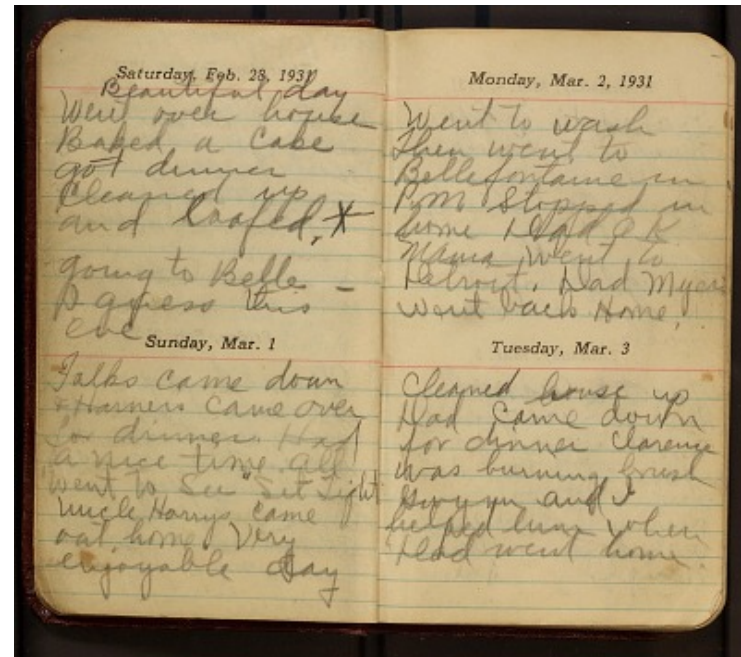 Saturday, Feb. 28, 1931
Beautiful day
Went over house
Baked a cake
got dinner
Cleaned up
and loafed,
going to Belle –
I guess this
eve
Sunday, Mar. 1
Folks came down
& Harners came over
for dinner. Had
a nice time all
went to see "Sit Tight
Uncle Harrys came
out home. Very
enjoyable day
Monday, Mar. 2, 1931
Went to wash
Then went to
Bellefontaine in
P.M. Stopped in
home Dad O K
Mama went to
Detroit. Dad Myers
went back Home.
Tuesday, Mar. 3
Cleaned house up
Dad came down
for dinner Clarence
was burning brush
and I
helped him when
Dad went home.